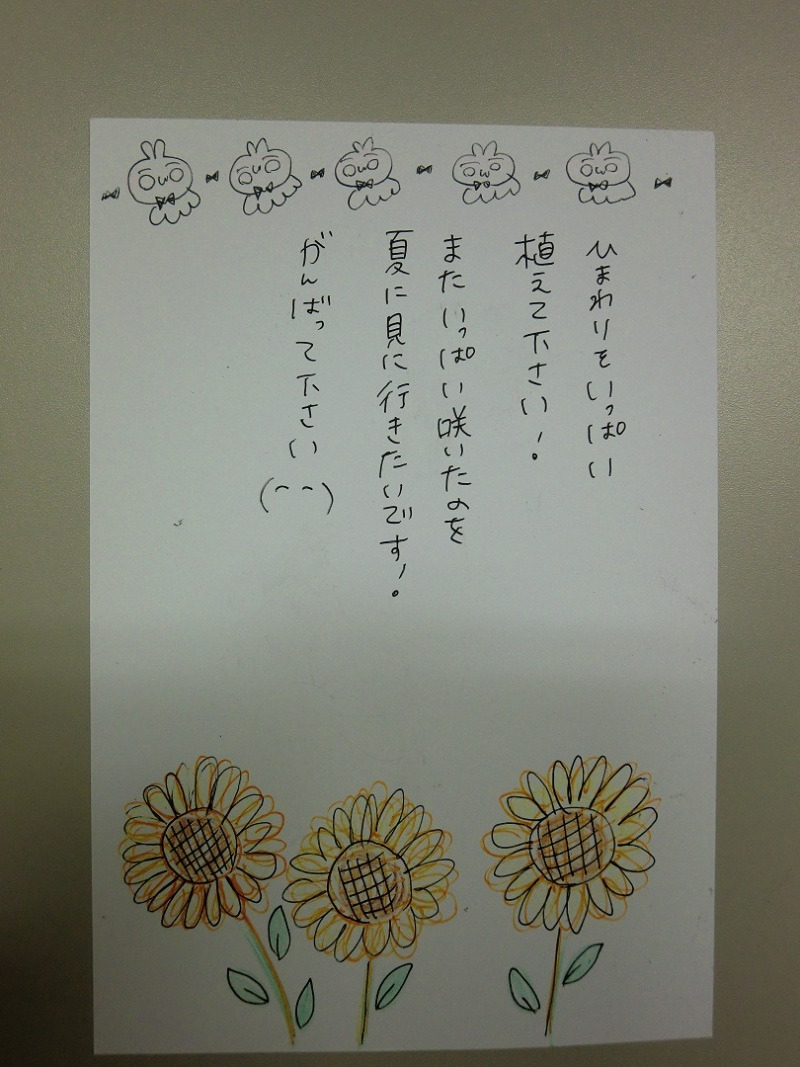 ひまわりをいっぱい
植えて下さい！
またいっぱい咲いたのを
夏に見に行きたいです！
がんばって下さい(^^)